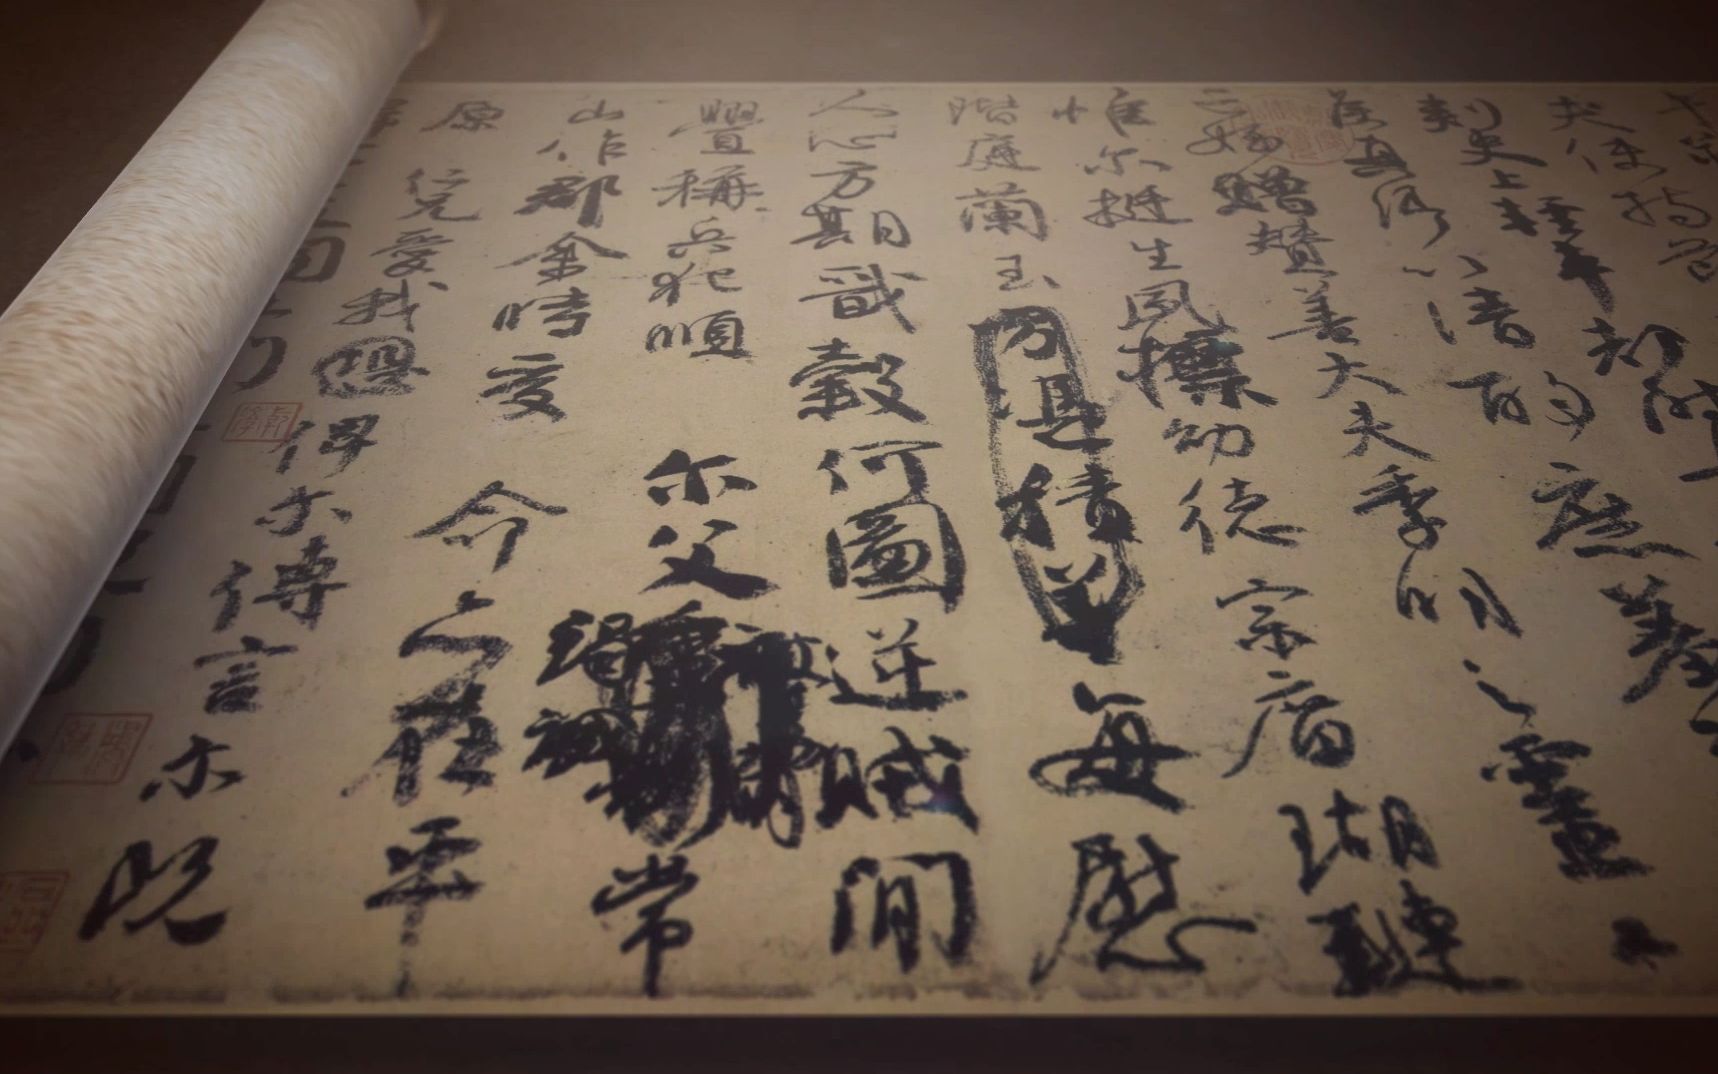 夫使持節
刺史上輕車都尉
侯真卿以清酌庶羞
贈贊善大夫季明之靈
惟尔挺生夙標幼德宗廟瑚璉
階庭蘭玉方憑積善每慰
人心方期戩穀何圖逆賊間
釁稱兵犯順尔父常
山作郡余時受命亦在平
原仁兄愛我恐俾尔傳言尔既